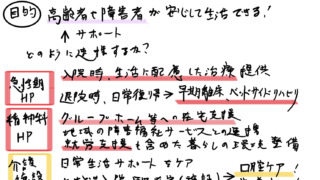 目的 高齢者や障害者が安心して生活できる!
↑サポート
どのように連携するか?
急性期HP 入院時、生活に配慮した治療提供
退院時、日常復帰→早期離床、ベッドサイドリハビリ
精神科HP グループホーム等への在宅支援
地域の障害福祉サービスとの連携
就労支援も含めた暮らしの支援を整備
介護 日常生活サポートをケア 口腔ケア!